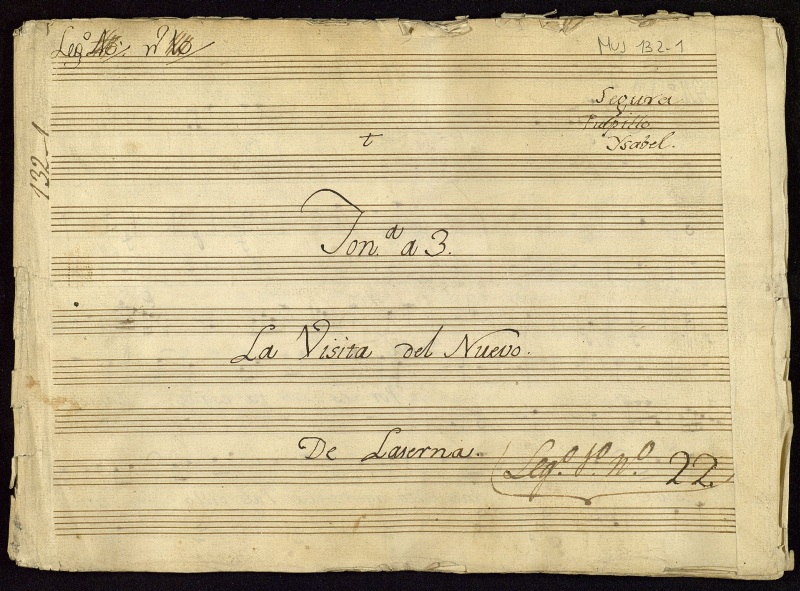 Legº nº
Mus 132-1
132-1
Segura
Pulpillo
Ysabel.
t
Ton.ª a 3.
La Visita del Nuevo.
De Laserna.
Leg.º 1º nº 22.